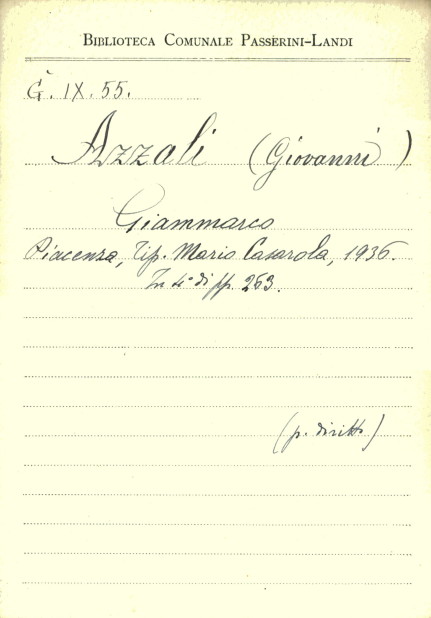 BIBLIOTECA COMUNALE PASSERINI-LANDI
G. IX. 55.
Azzali (Giovanni)
Giammarco
Piacenza, Tip. Mario Casarola, 1936.
In 4° di pp. 263.
(p. diritto)